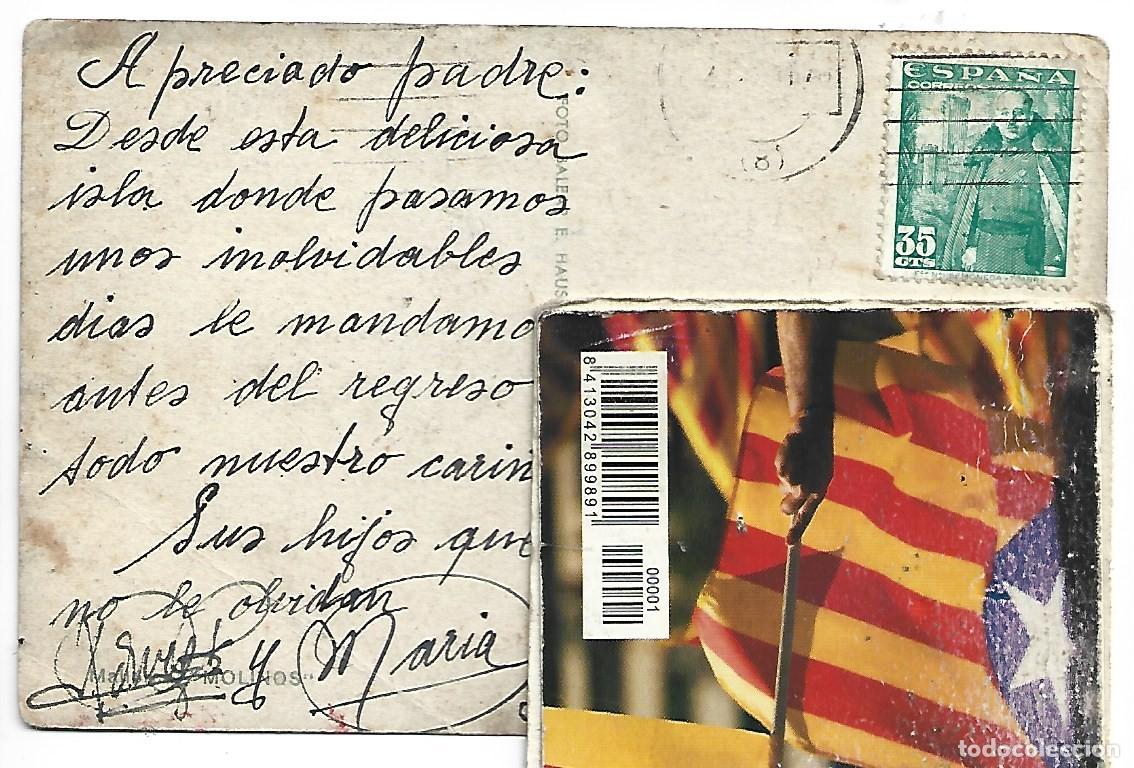 Apreciado padre:
Desde esta deliciosa
isla donde pasamos
unos inolvidables
dias le mandamo
antes del regreso
todo nuestro cariñ
Sus hijos que
no le olvidan
y Maria
"MOLINOS"
FOTO E. HAUS
(8)
ESPAÑA
CORREOS
35
CTS
8 413042 899891
00001
todocoleccion